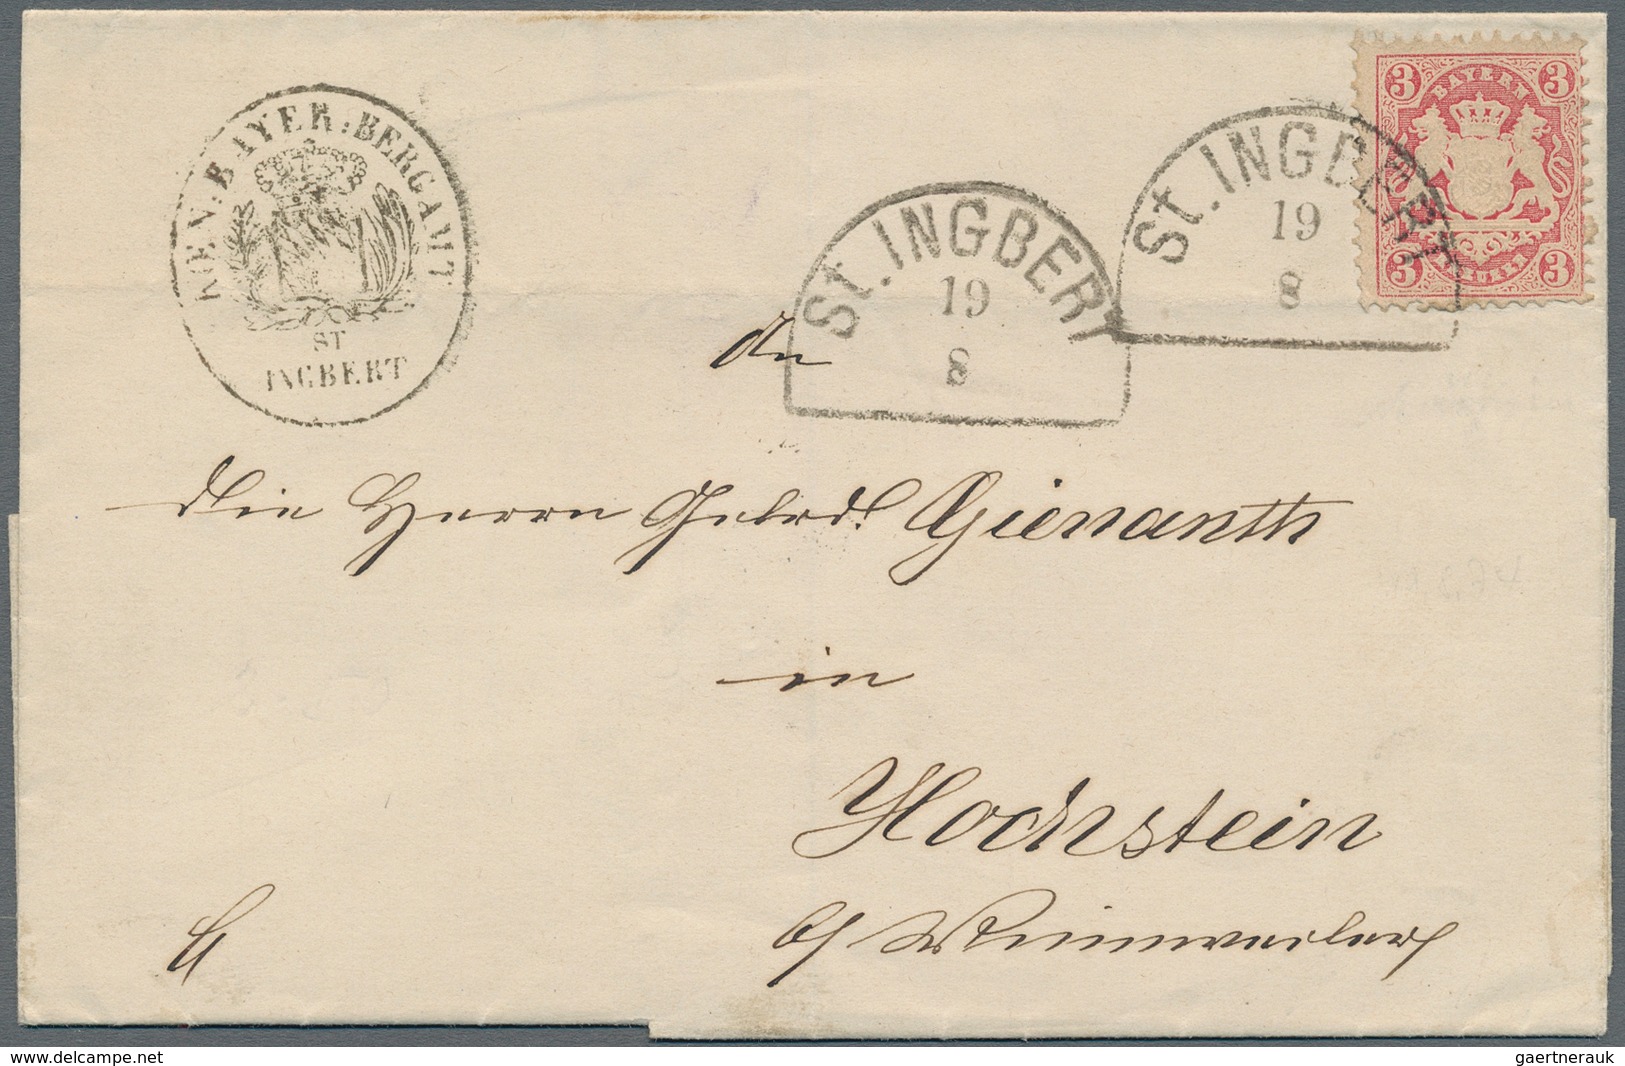 KOEN. BAYER: BERGAMT
ST
INGBERT
St. INGBERT
19
8
St. INGBERT
19
8
3 BAYERN 3
3 KREUZER 3
An
die Herrn Gebrd. Gienanth
in
Hochstein
b/ Winnweiler
www.delcampe.net
gaertnerauk